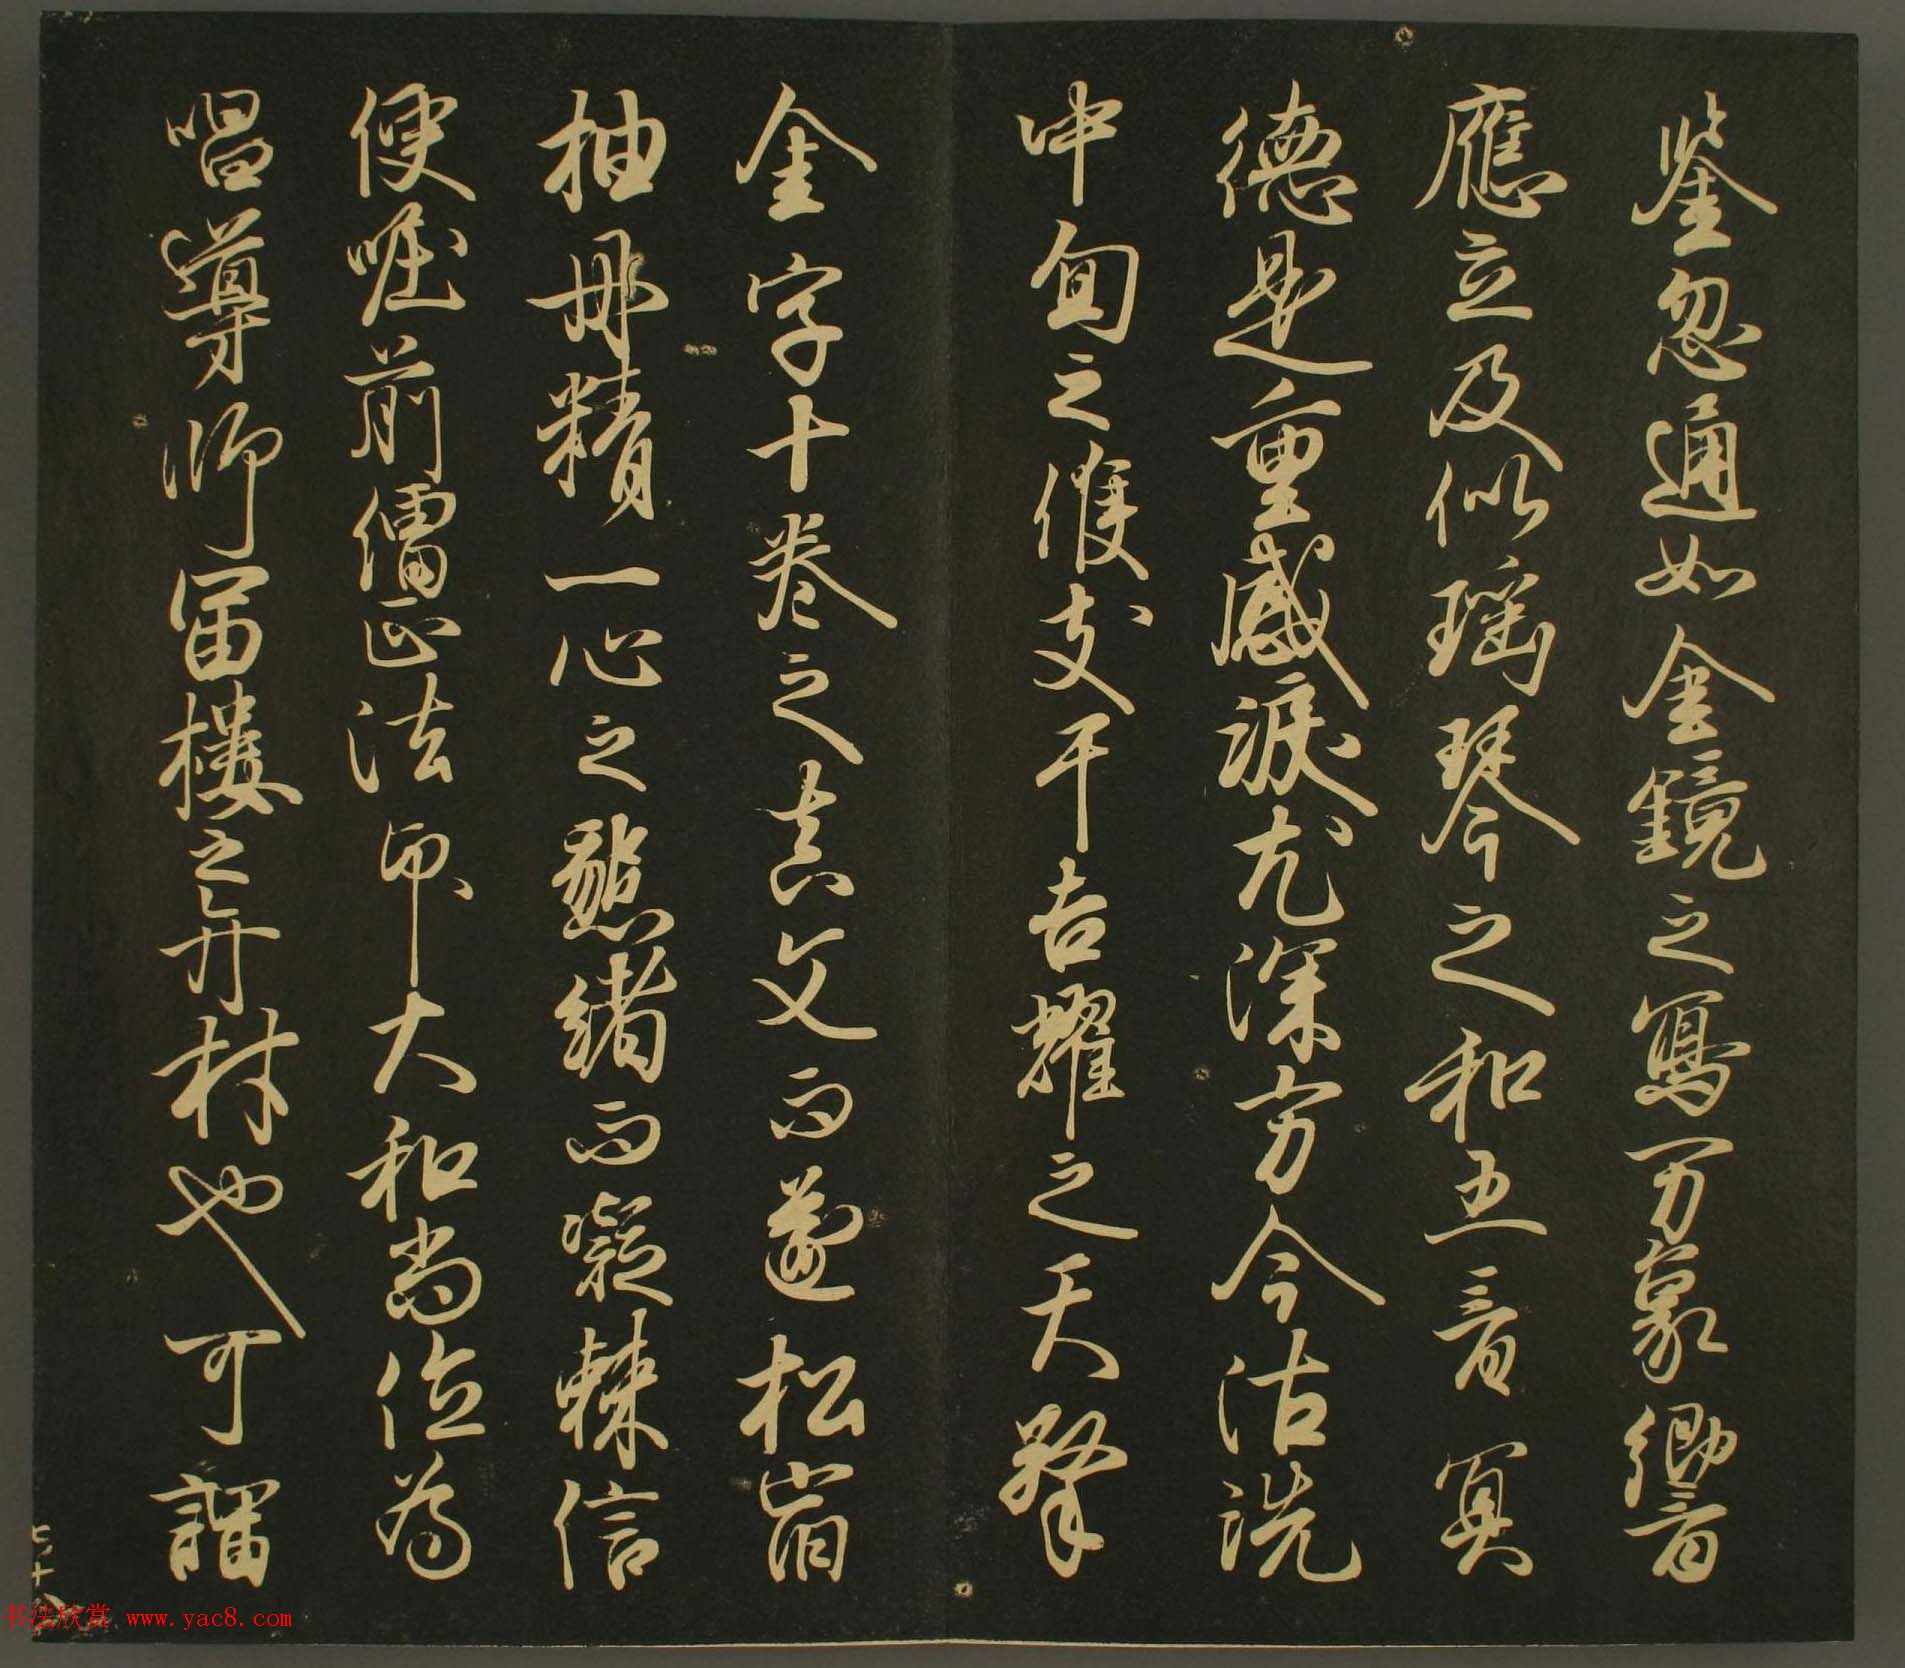 鑒忽通如金鏡之寫万象響
應立及似瑤琴之和五音冥
德是重感淚尤深方今沽洗
中旬之候支干吉耀之天擇
金字十卷之真文而邃松窗
抽丹精一心之懇緒而凝棘信
便啒前僧正法印大和尚位為
唱導師富樓之弁材也可謂
七十八
书法欣赏 www.yac8.com